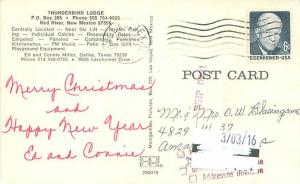 THUNDERBIRD LODGE
P.O. Box 265 • Phone 505 754-9923
Red River, New Mexico 87558
Centrally Located — Near Ski Lift
Individual Cables — Reasonable Rates
Carpeted — Paneled — Completely Furnished
Kitchenettes — FM Music — Patio — Gas Grill
Playground Equipment
Ed and Connie Miller, Dallas, Texas 75238
Phone 214 348-0755 • 9686 Larchcrest Drive
EISENHOWER·USA
6c
POST CARD
Merry Christmas
and
Happy New Year
Ed and Connie
Mr. & Mrs. O.W. Blasingame
4829 37
3/03/16
Ama
290015